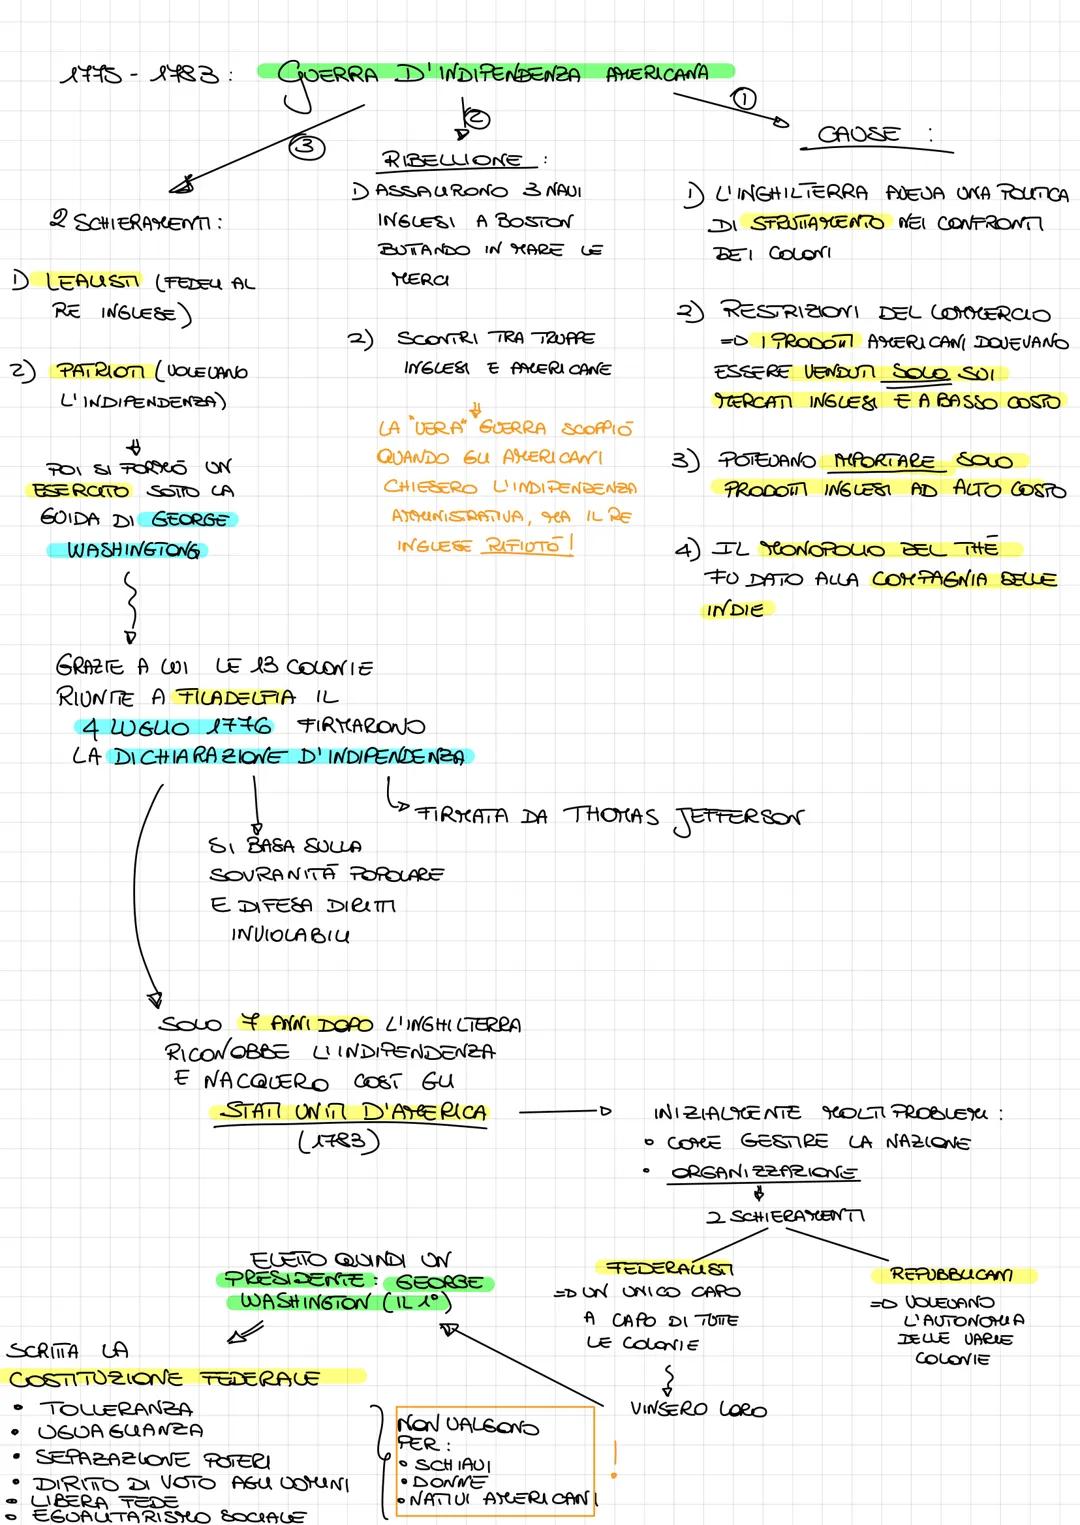 1775 - 1783: GUERRA D'INDIPENDENZA AMERICANA
1
CAUSE :
1) L'INGHILTERRA AVEVA UNA POLITICA
DI SFRUTTAMENTO NEI CONFRONTI
DEI COLONI
2) RESTRIZIONI DEL COMMERCIO
=D I PRODOTTI AMERICANI DOVEVANO
ESSERE VENDUTI SOLO SUI
MERCATI INGLESI E A BASSO COSTO
3) POTEVANO IMPORTARE SOLO
PRODOTTI INGLESI AD ALTO COSTO
4) IL MONOPOLIO DEL THÈ
FU DATO ALLA COMPAGNIA DELLE
INDIE
2
RIBELLIONE :
1) ASSALIRONO 3 NAVI
INGLESI A BOSTON
BUTTANDO IN MARE LE
MERCI
2) SCONTRI TRA TRUPPE
INGLESI E AMERICANE
LA "VERA" GUERRA SCOPPIÒ
QUANDO GLI AMERICANI
CHIESERO L'INDIPENDENZA
AMMINISTRATIVA, MA IL RE
INGLESE RIFIUTÒ!
3
2 SCHIERAMENTI:
1) LEALISTI (FEDELI AL
RE INGLESE)
2) PATRIOTI (VOLEVANO
L'INDIPENDENZA)
POI SI FORMÒ UN
ESERCITO SOTTO LA
GUIDA DI GEORGE
WASHINGTONG
GRAZIE A LUI LE 13 COLONIE
RIUNITE A FILADELFIA IL
4 LUGLIO 1776 FIRMARONO
LA DICHIARAZIONE D'INDIPENDENZA
FIRMATA DA THOMAS JEFFERSON
SI BASA SULLA
SOVRANITÀ POPOLARE
E DIFESA DIRITTI
INVIOLABILI
SOLO 7 ANNI DOPO L'INGHILTERRA
RICONOBBE L'INDIPENDENZA
E NACQUERO COSÌ GLI
STATI UNITI D'AMERICA
(1783)
INIZIALMENTE MOLTI PROBLEMI :
• COME GESTIRE LA NAZIONE
• ORGANIZZAZIONE
2 SCHIERAMENTI
FEDERALISTI
=D UN UNICO CAPO
A CAPO DI TUTTE
LE COLONIE
VINSERO LORO
REPUBBLICANI
=D VOLEVANO
L'AUTONOMIA
DELLE VARIE
COLONIE
ELETTO QUINDI UN
PRESIDENTE: GEORGE
WASHINGTON (IL 1°)
SCRITTA LA
COSTITUZIONE FEDERALE
• TOLLERANZA
• UGUAGLIANZA
• SEPARAZIONE POTERI
• DIRITTO DI VOTO AGLI UOMINI
• LIBERA FEDE
• EGUALITARISMO SOCIALE
NON VALGONO
PER:
• SCHIAVI
• DONNE
• NATIVI AMERICANI
!